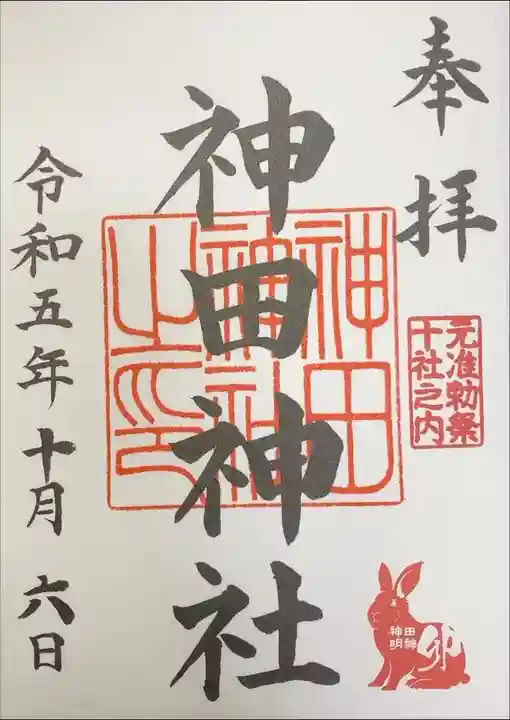 奉拝
元准勅祭
十社之内
卯
田神
神明
神田神社
神田
神社
之印
令和五年十月六日